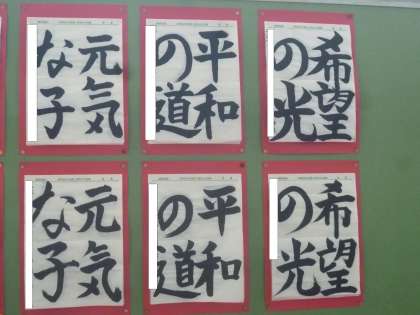 元気
な子
平和
の道
希望
の光
元気
な子
平和
の道
希望
の光